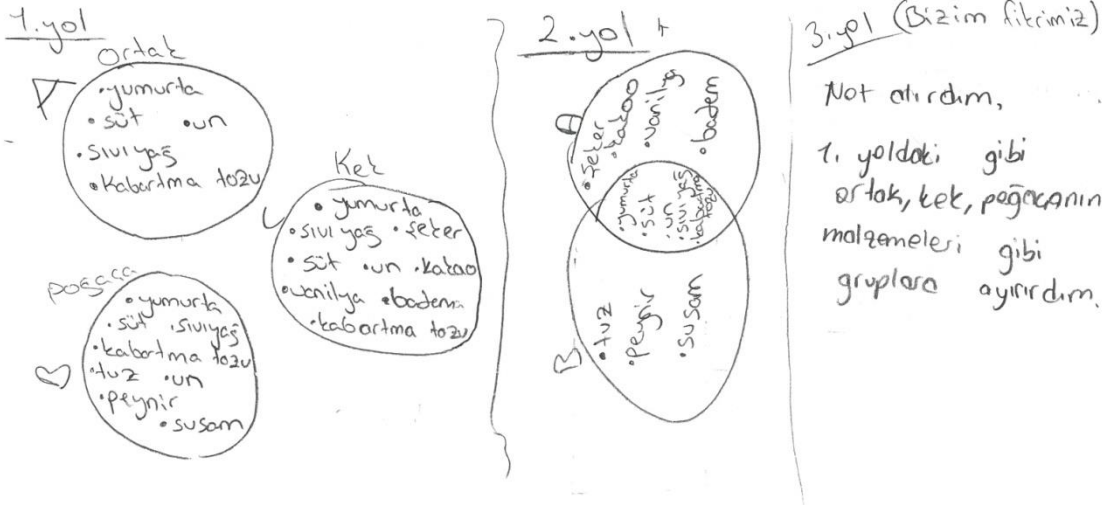 1.yol
Ortak
•yumurta
•süt •un
•sıvı yağ
•Kabartma tozu
Kek
•yumurta
•sıvı yağ •şeker
•süt •un •kakao
•vanilya •badem
•kabartma tozu
poğaça
•yumurta
•süt •sıvıyağ
•kabartma tozu
•tuz •un
•peynir
•susam
2.yol
•şeker
•kakao
•vanilya
•badem
•yumurta
•süt
•un
•sıvı yağ
•kabartma
tozu
•tuz
•peynir
•susam
3.yol (Bizim fikrimiz)
Not alırdım,
1. yoldaki gibi
ortak, kek, poğaçanın
malzemeleri gibi
gruplara ayırırdım.